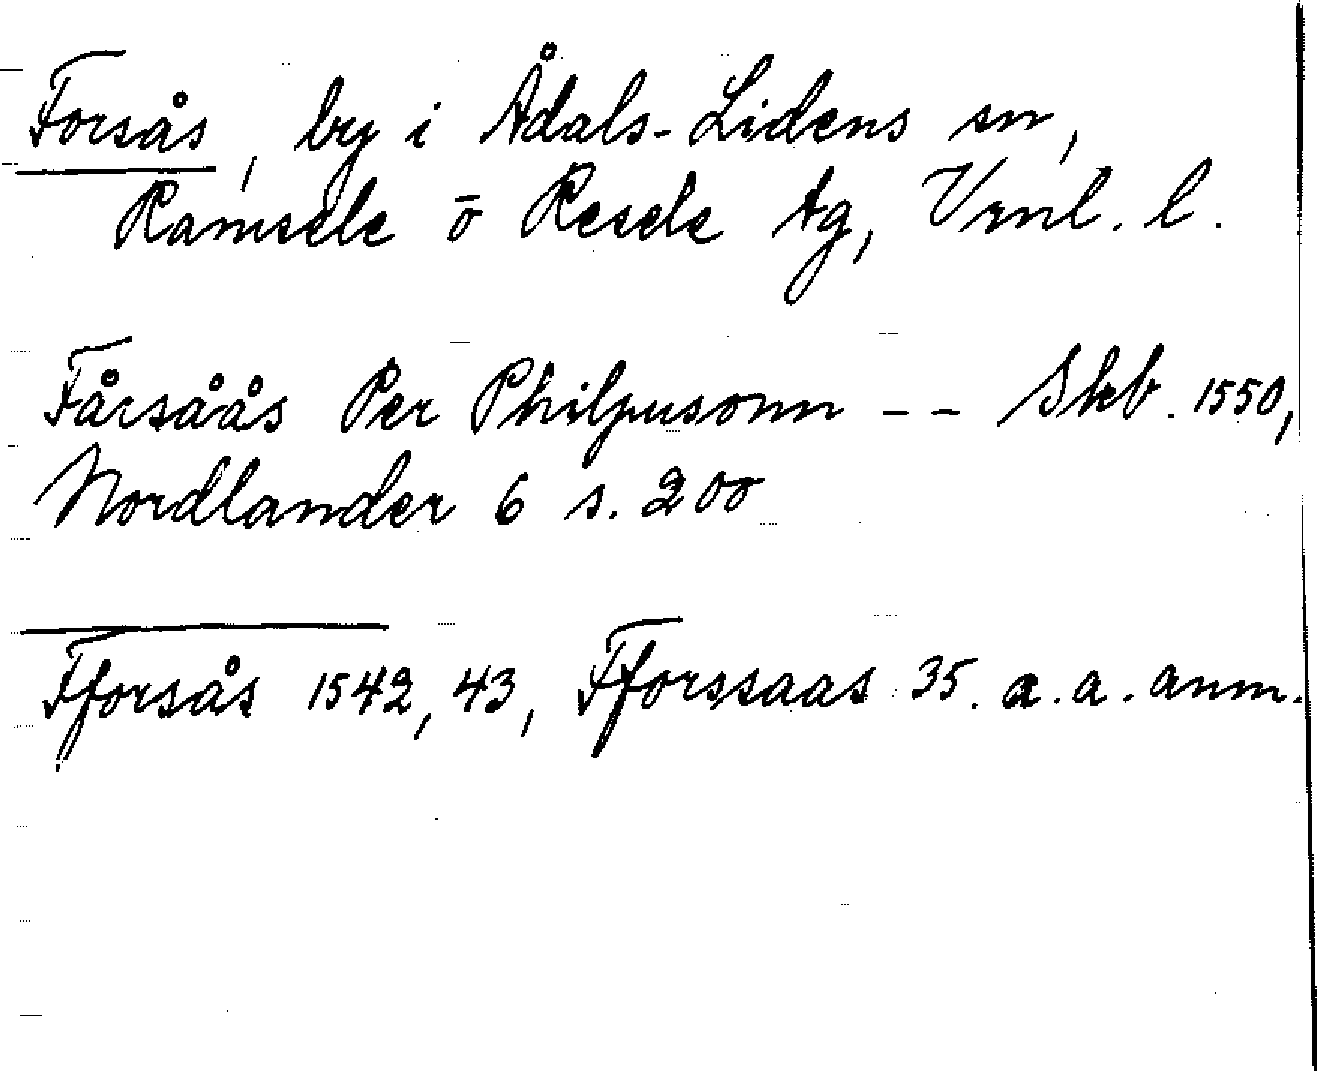 Forsås, by i Ådals-Lidens sn,
Ramsele o Resele tg, Vrnl. l.
Fårsåås Per Philpusonn -- Skb. 1550,
Nordlander 6 s. 200
Fforsås 1542, 43, Fforssaas 35. a.a. anm.